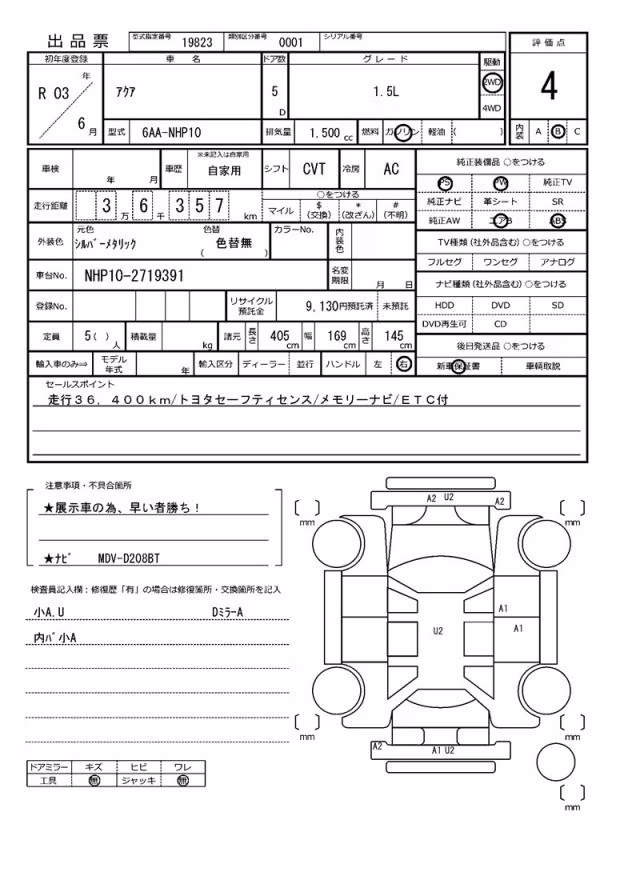 出品票 型式指定番号 19823 類別区分番号 0001 シリアル番号
評価点
初年度登録 車名 ドア数 グレード 駆動
R 03 年 6 月 アクア 5 D 1.5L 2WD 4WD
4
型式 6AA-NHP10 排気量 1.500 cc 燃料 ガソリン 軽油 ( )
内装 A B C
車検 年 月 車歴 ※未記入は自家用 自家用 シフト CVT 冷房 AC
走行距離 3 万 6 千 3 5 7 km
○をつける
マイル $ (交換) * (改ざん) # (不明)
外装色 元色 シルバーメタリック 色替 ( 色替無 ) カラーNo. 内装色
車台No. NHP10-2719391 名変期限 月 日
登録No. リサイクル預託金 9,130円預託済 未預託
定員 5( ) 人 積載量 kg 諸元 長さ 405 cm 幅 169 cm 高さ 145 cm
輸入車のみ⇨ モデル年式 年 輸入区分 ディーラー 並行 ハンドル 左 右
純正装備品 ○をつける
PS PW 純正TV
純正ナビ 革シート SR
純正AW エアB ABS
TV種類(社外品含む)○をつける
フルセグ ワンセグ アナログ
ナビ種類(社外品含む)○をつける
HDD DVD SD
DVD再生可 CD
後日発送品 ○をつける
新車保証書 車輌取説
セールスポイント
走行36,400km/トヨタセーフティセンス/メモリーナビ/ETC付
注意事項・不具合箇所
★展示車の為、早い者勝ち!
★ナビ MDV-D208BT
検査員記入欄:修復歴「有」の場合は修復箇所・交換箇所を記入
小A.U DミラーA
内バ小A
ドアミラー キズ ヒビ ワレ
工具 無 ジャッキ 無
A2 U2 A2
[ ] mm [ ] mm
A1
U2 A1
[ ] mm [ ] mm
A2 A1 U2
[ ] mm